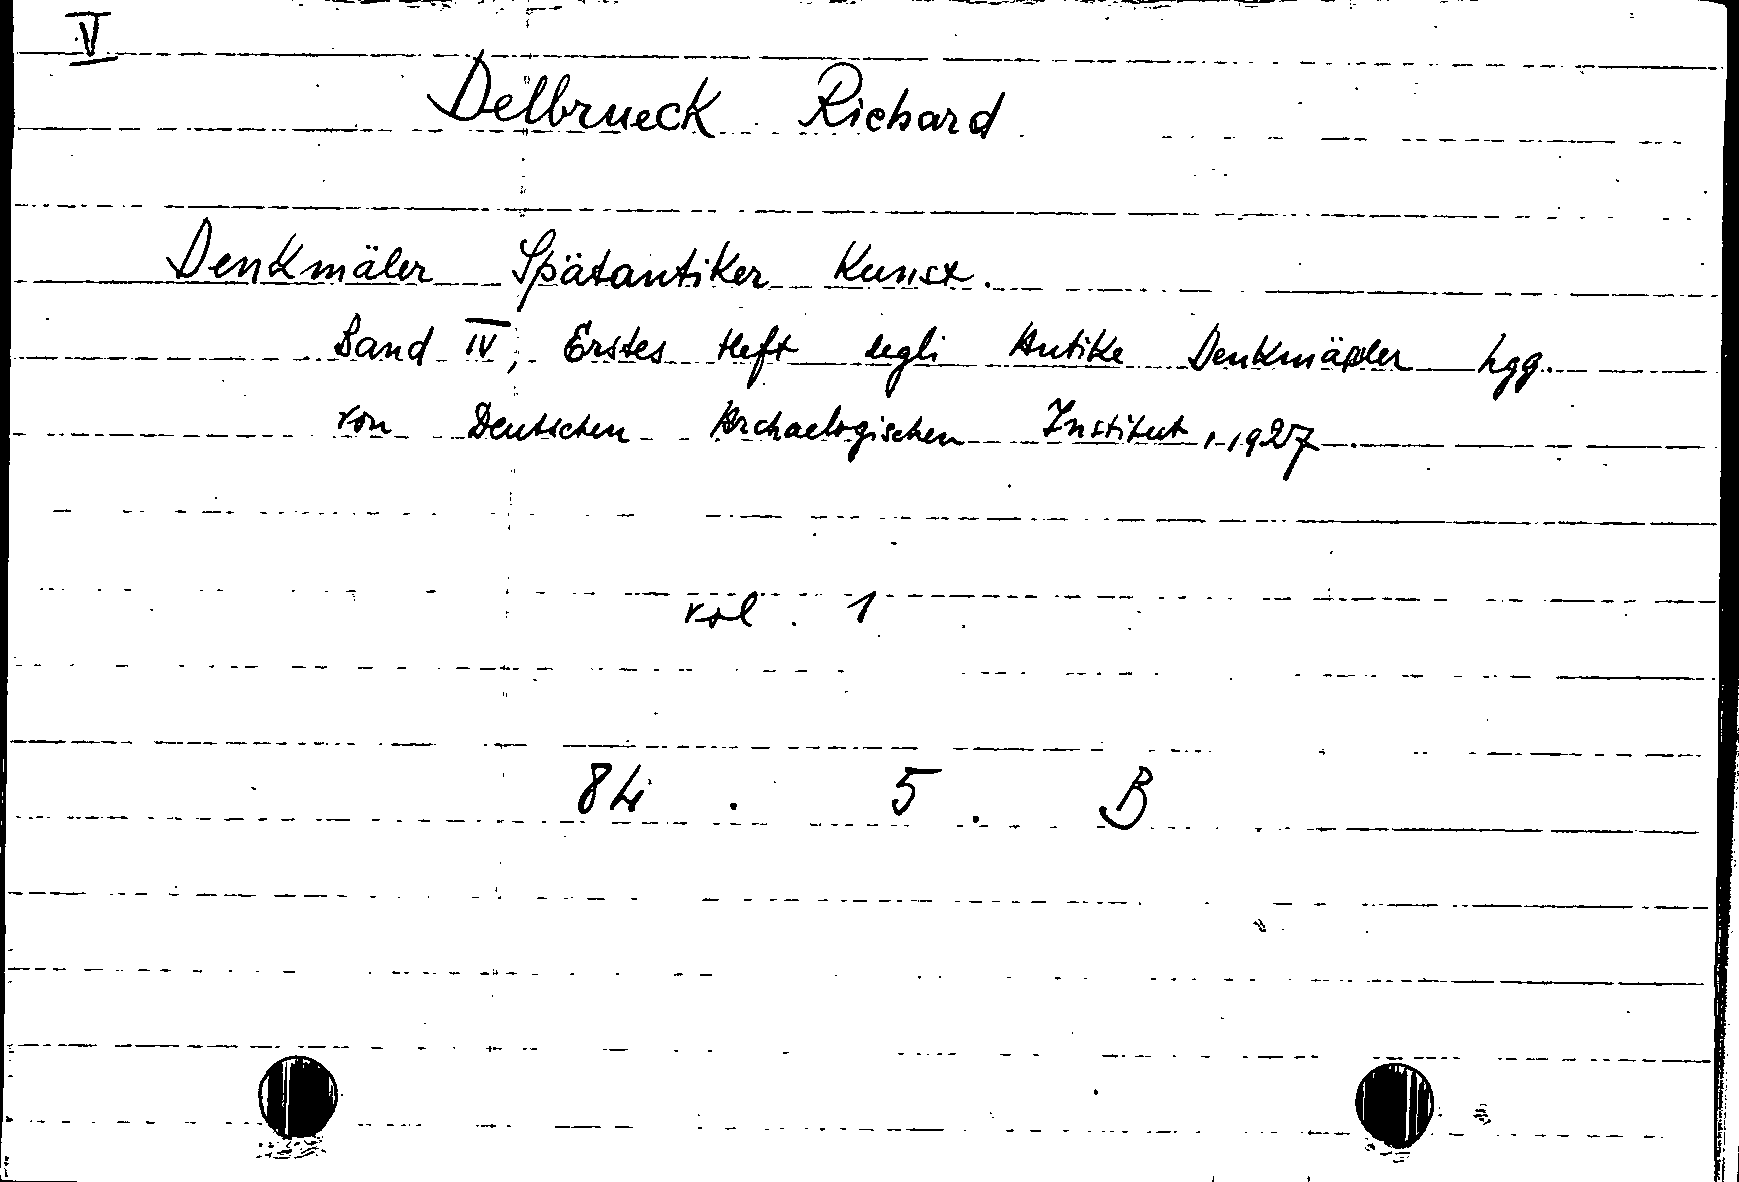 V
Delbrueck Richard
Denkmäler Spätantiker Kunst.
Band IV, Erstes Heft degli Antike Denkmäler hgg.
von Deutschen Archaelogischen Institut, 1927.
vol. 1
84. 5. B